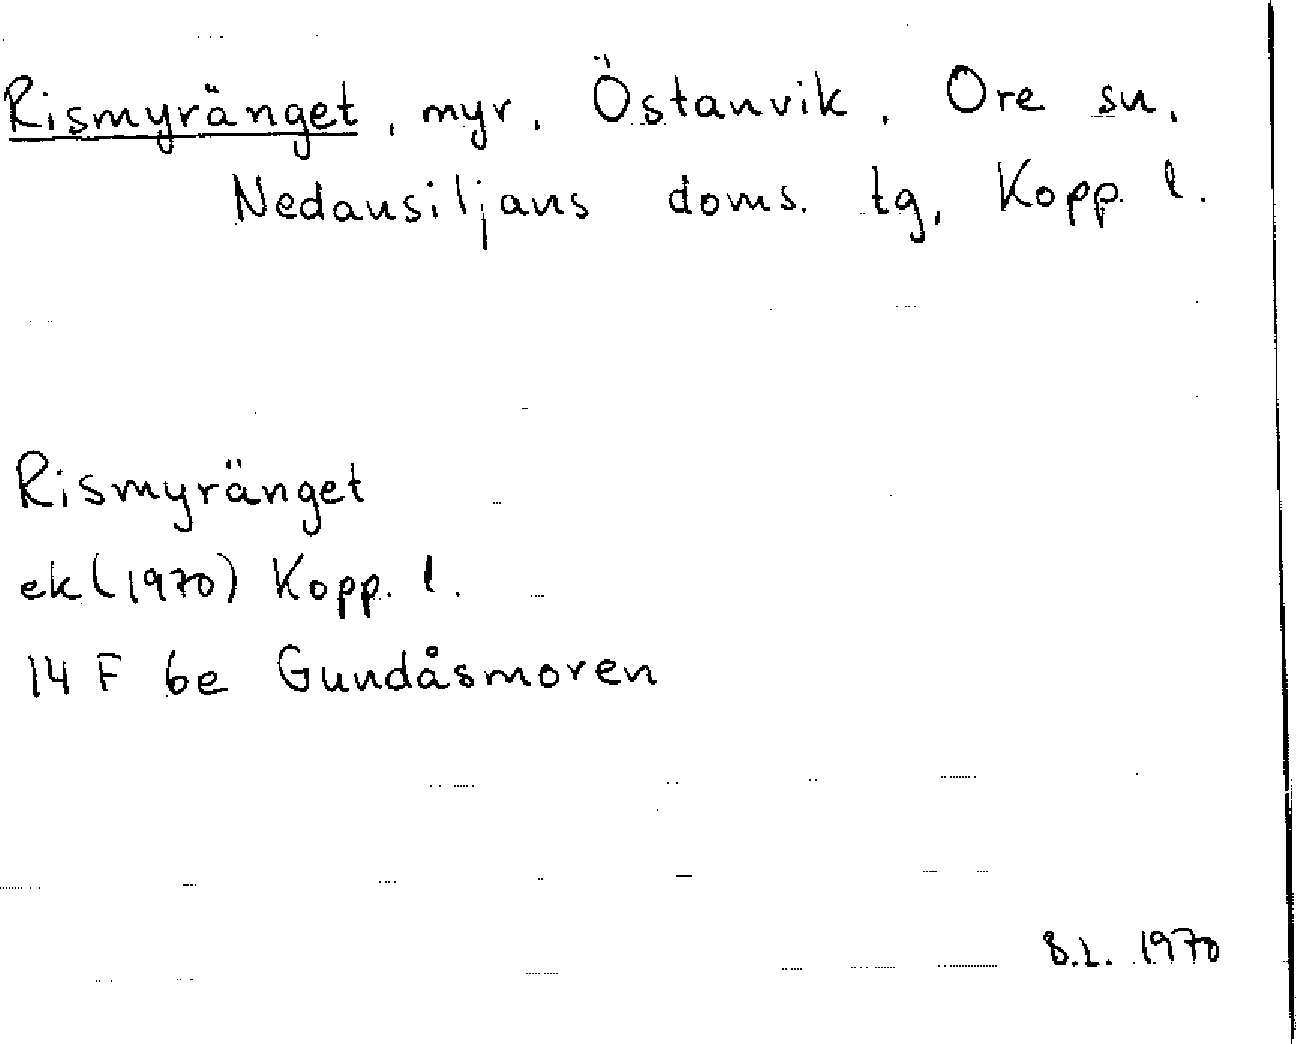 Rismyränget, myr, Östanvik, Ore sn,
Nedansiljans doms. tg, Kopp. l.
Rismyränget
ek (1970) Kopp. l.
14 F 6e Gundåsmoren
B.L. 1970